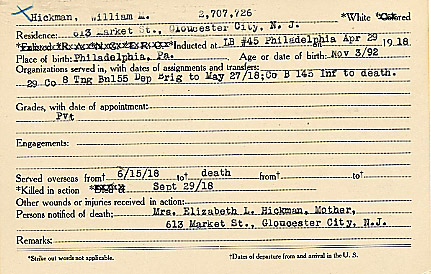 Hickman, William L. 2,707,726 *White *Colored
Residence: 613 Market St., Gloucester City, N. J.
*Inducted at LB #45 Philadelphia Apr 29 1918
Place of birth: Philadelphia, Pa. Age or date of birth: Nov 3/92
Organizations served in, with dates of assignments and transfers:
29 Co 8 Tng Bn 155 Dep Brig to May 27/18; Co B 145 Inf to death.
Grades, with date of appointment:
Pvt
Engagements:
Served overseas from† 6/15/18 to† death from† to†
*Killed in action Sept 29/18
Other wounds or injuries received in action:
Persons notified of death: Mrs. Elizabeth L. Hickman, Mother,
613 Market St., Gloucester City, N.J.
Remarks:
*Strike out words not applicable. †Dates of departure from and arrival in the U. S.